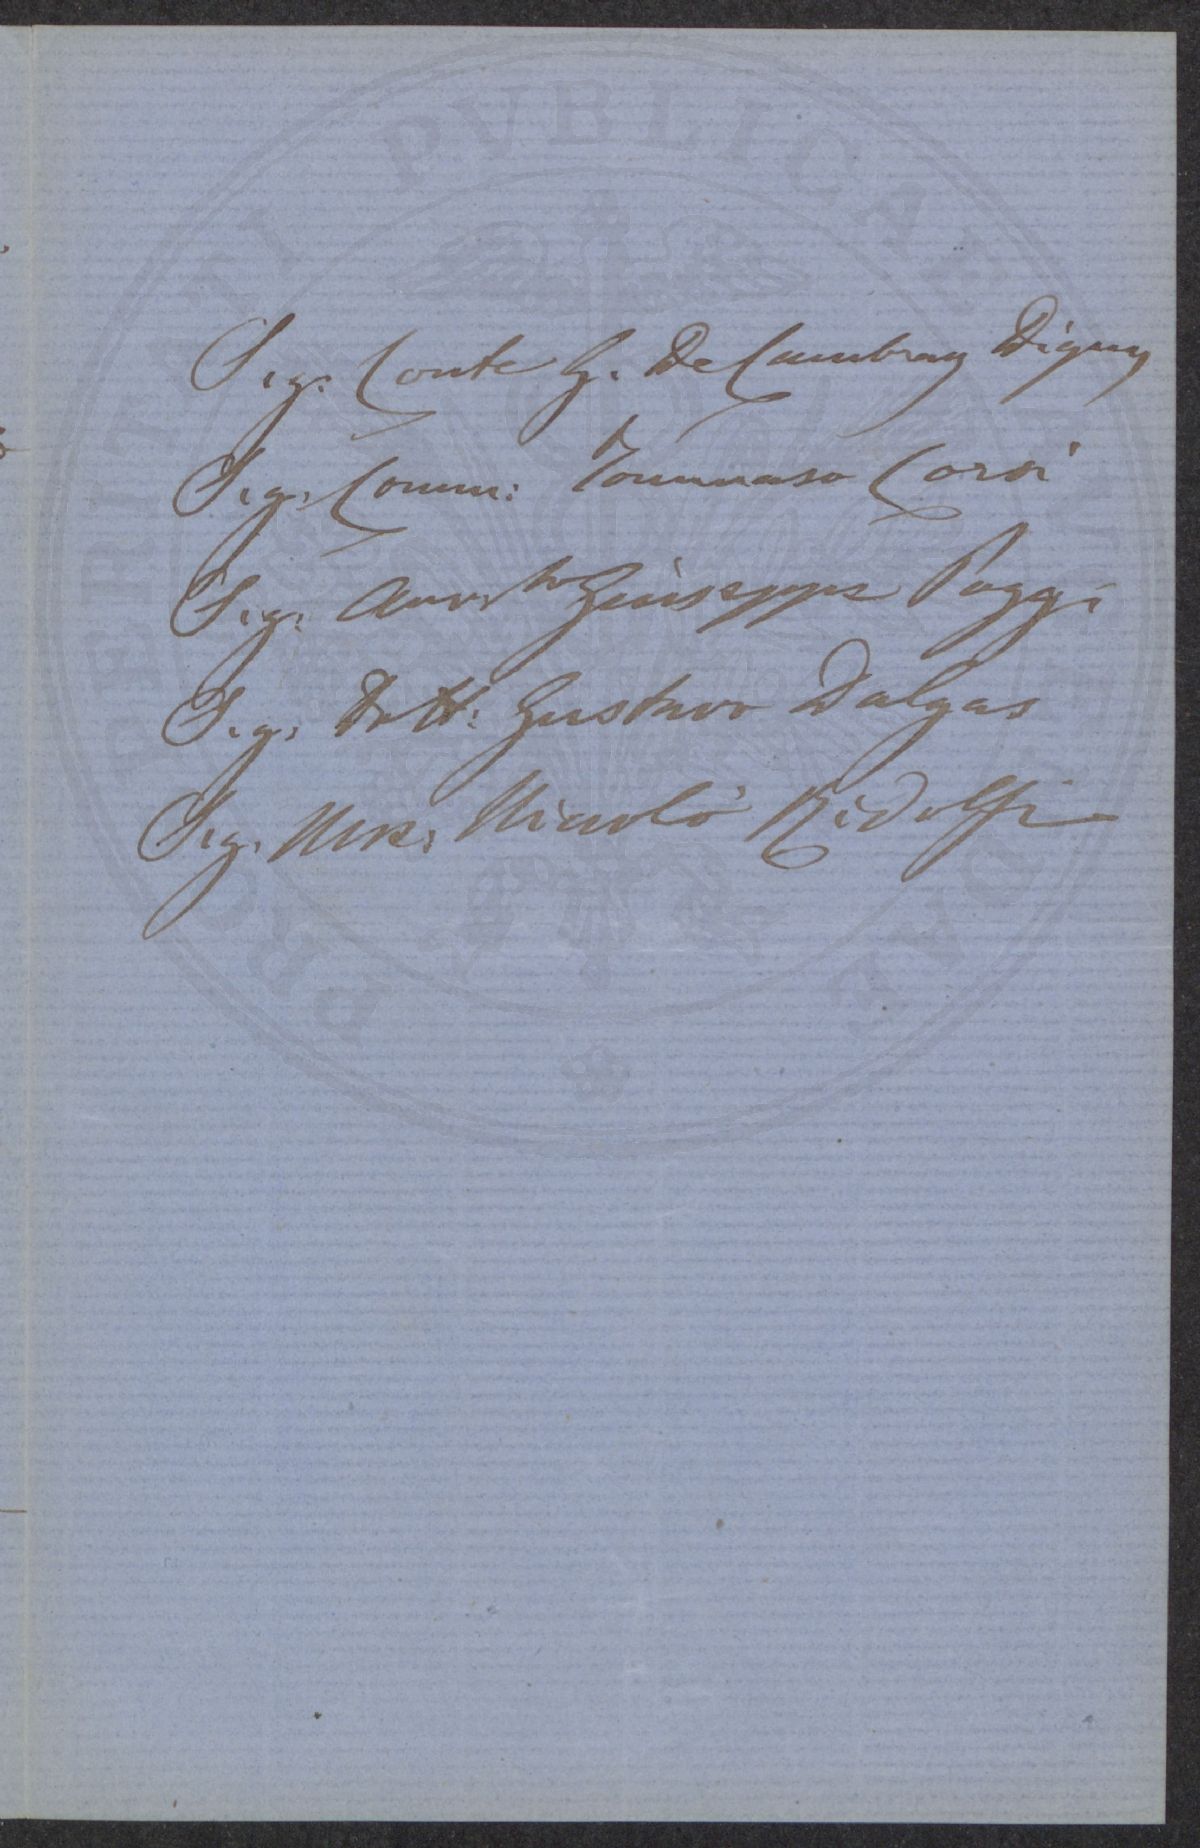 Sig: Conte G. De Cambray Digny
Sig. Comm: Tommaso Corsi
Sig: Avv.to Giuseppe Poggi
Sig. Dott: Gustavo Dalgas
Sig. Mse. Nicolò Ridolfi
PROSPERITATI PUBLICAE